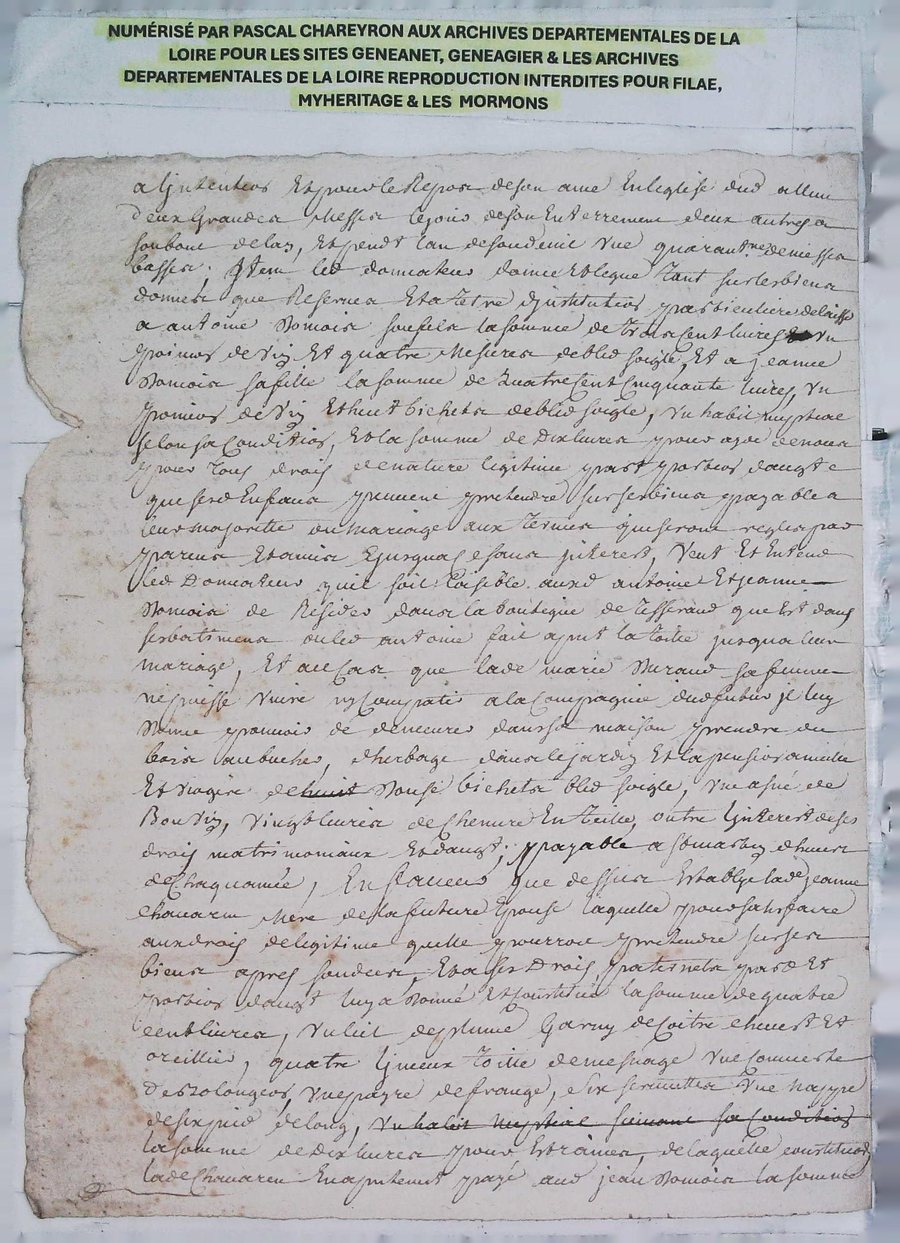 NUMÉRISÉ PAR PASCAL CHAREYRON AUX ARCHIVES DEPARTEMENTALES DE LA
LOIRE POUR LES SITES GENEANET, GENEAGIER & LES ARCHIVES
DEPARTEMENTALES DE LA LOIRE REPRODUCTION INTERDITES POUR FILAE,
MYHERITAGE & LES MORMONS
a Lintention Et pour le Repos de son ame En leglise dud
deux Grandes Messes le jour de son Enterrement deux autres a
son bout de lan, Et pendt lan de son deuil une quarantne de messes
basses. Item led donnateur donne Et legue tant sur les biens
donnés que Reservés Et a titre dinstitution particuliere delaisse
a antoine son fils la somme de trois cent livres un
de vin Et quatre Mesures de bled soigle, Et a jeanne
sa fille la somme de quatre cent cinquante livres, un
de vin Et huit bichets de bled soigle, un habit nuptial
selon sa Condition, Et la somme de dix livres pour
pour tous drois de nature legitime part portion daugt
que sesd Enfans peuvent pretendre sur ses biens payable a
leur majorité ou mariage aux termes que seront reglés par
parens Et amis Et jusqua ce sans jnterest, Veut Et Entend
led Donnateur quil soit Loisible ausd antoine Et jeanne
de Resider dans la boutique de Tisserand que Est dans
ses batimens ou led antoine fait la toille jusqua leur
mariage, Et au Cas que lade marie Durand sa femme
ne puisse vivre ny Compatir a la Compagnie dud futur jl luy
Donne pouvoir de demeurer dans sa maison prendre du
bois au bucher, dherbage dans le jardin Et la pension annuelle
Et viagere de huit Douse bichets bled soigle, une asné de
Bon vin, vingt livres de Chenvre En teille, outre Linterest de ses
drois matrimoniaux Et daugt; payable a st martin dhiver
de Chaquannée, En faveur que dessus Establye lade jeanne
Mere de la future Epouse laquelle pour satisfaire
aux drois de legitime quelle pourroit pretendre sur ses
biens apres son deces, Et a ses Drois paternels part Et
portion daugt luy a Donné Et Constitué la somme de quatre
cent livres, un lit de plume Garny de Coitre chevet Et
oreillier, quatre linceux toille de mesnage une couverte
une payre de frange, six serviettes une nappe
de six pied de long, un habit nuptial suivant sa Condition
la somme de dix livres pour Estraines, de laquelle constitution
lade En a presentement payé aud jean la somme